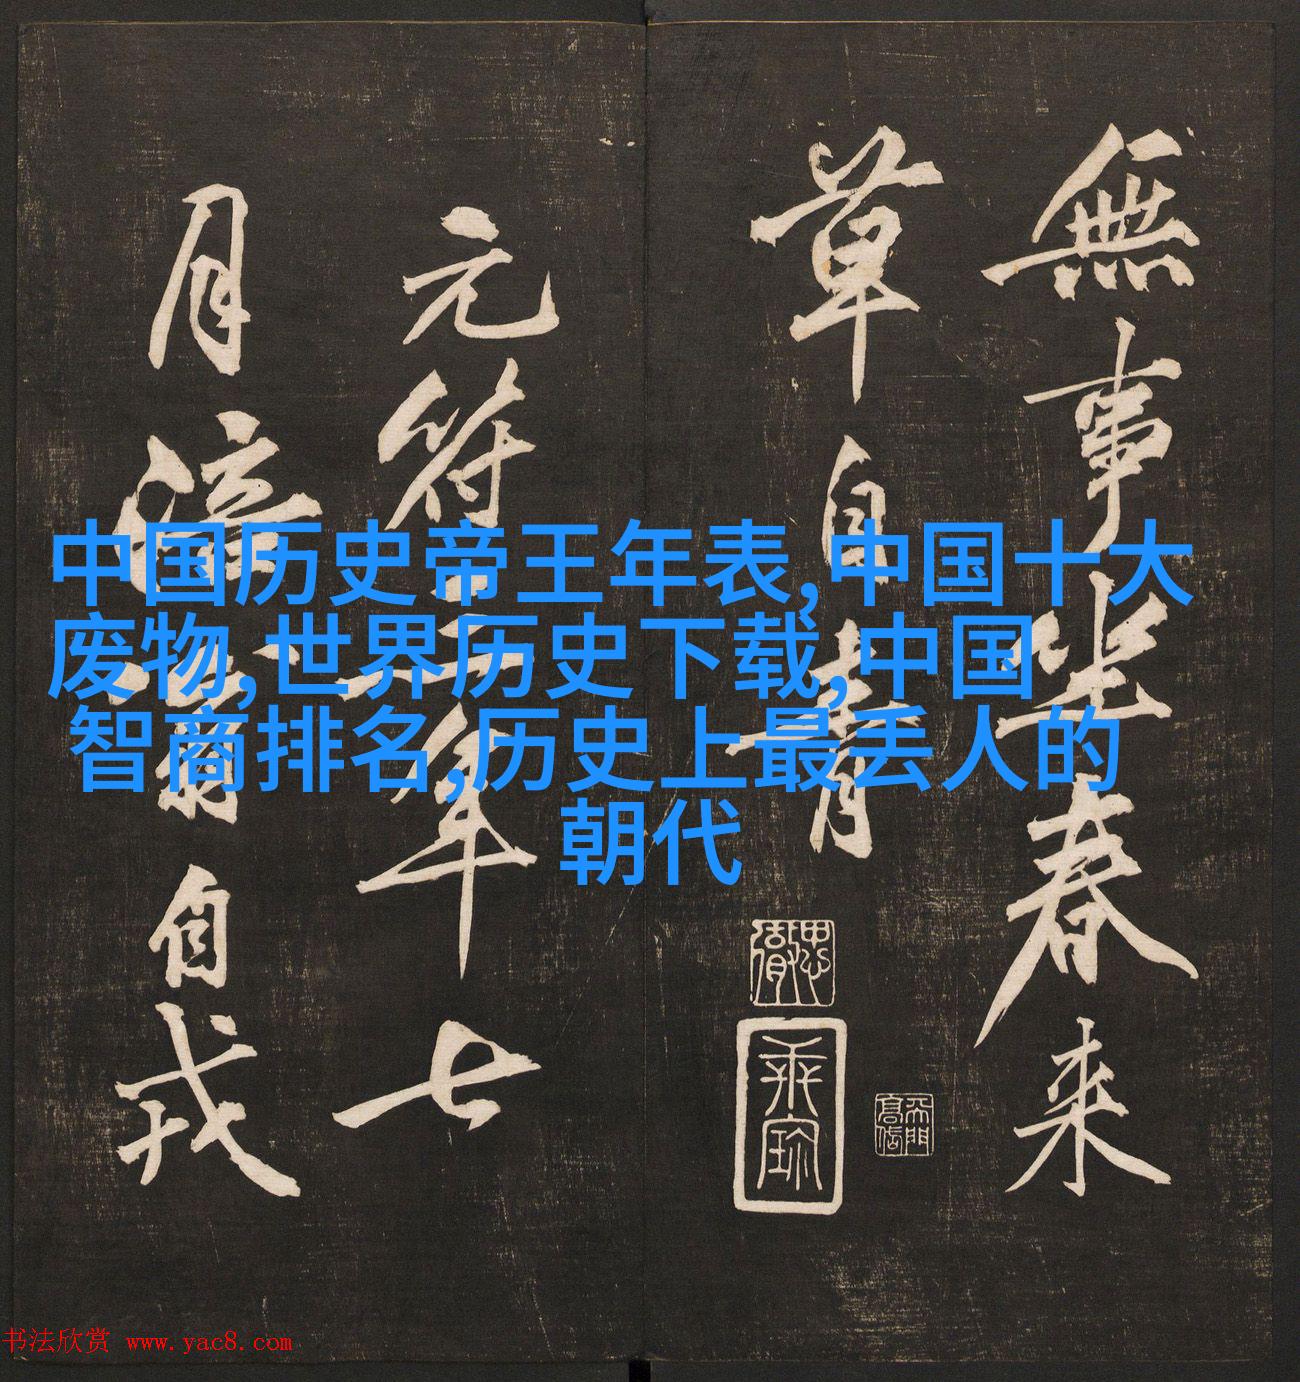 無事坐春来
草自青
元符三年七
月涪翁自戎
思
乘
珎
中国历史帝王年表,中国十大
废物,世界历史下载,中国
智商排名,历史上最丢人的
朝代
书法欣赏 www.yac8.com